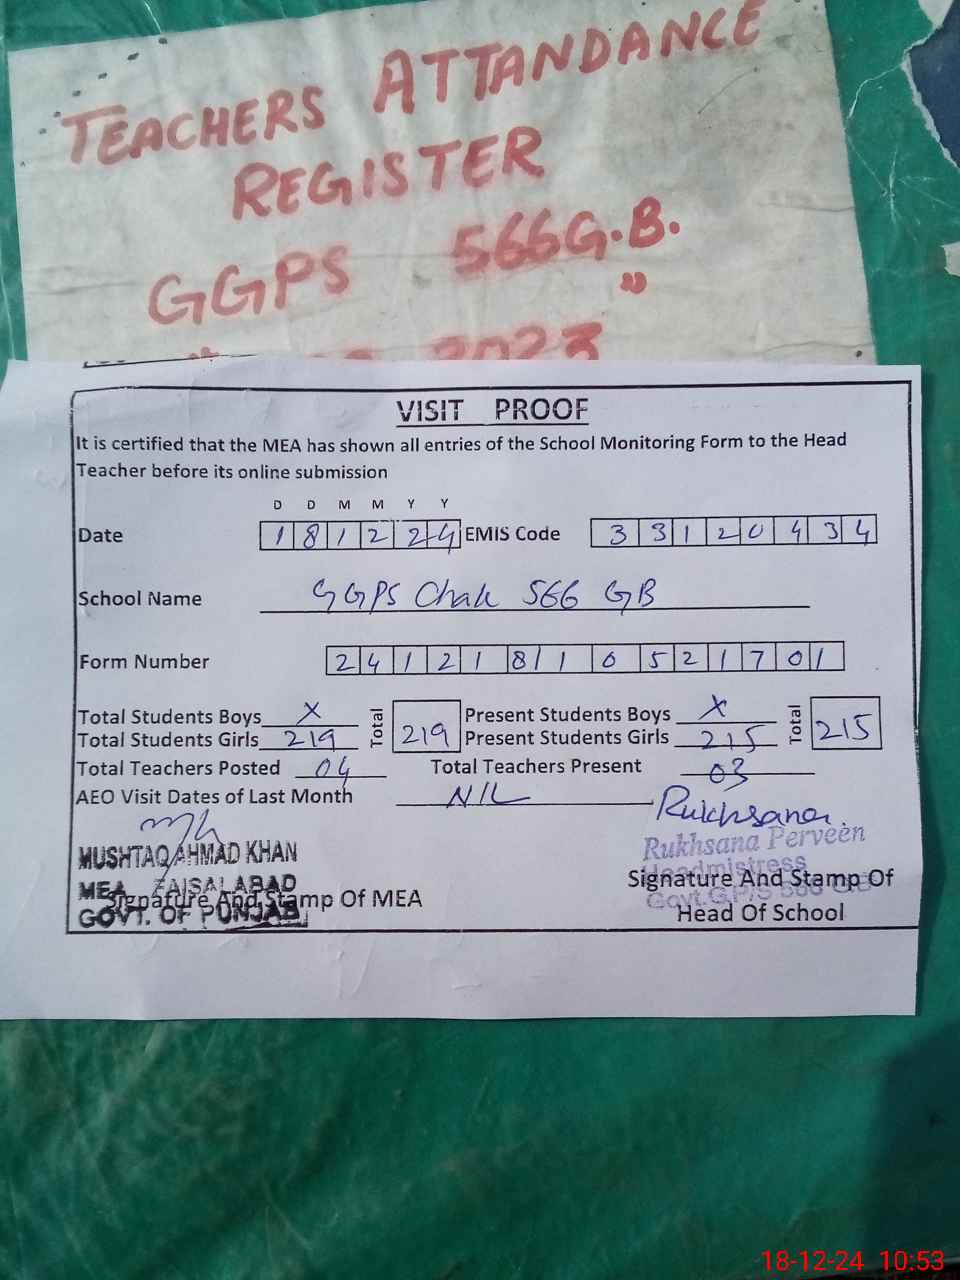 TEACHERS ATTANDANCE
REGISTER
GGPS 566G.B.
"
2023
VISIT PROOF
It is certified that the MEA has shown all entries of the School Monitoring Form to the Head
Teacher before its online submission
D D M M Y Y
Date 181224 EMIS Code 33120434
School Name GGPS Chak 566 GB
Form Number 24121810521701
Total Students Boys X Total 219 Present Students Boys X Total 215
Total Students Girls 219 Present Students Girls 215
Total Teachers Posted 04 Total Teachers Present 03
AEO Visit Dates of Last Month NIL
Rukhsana
MUSHTAQ AHMAD KHAN
MEA FAISALABAD
GOVT. OF PUNJAB
Signature And Stamp Of MEA
Rukhsana Perveen
Headmistress
Govt.G.P/S 566 GB
Signature And Stamp Of
Head Of School
18-12-24 10:53